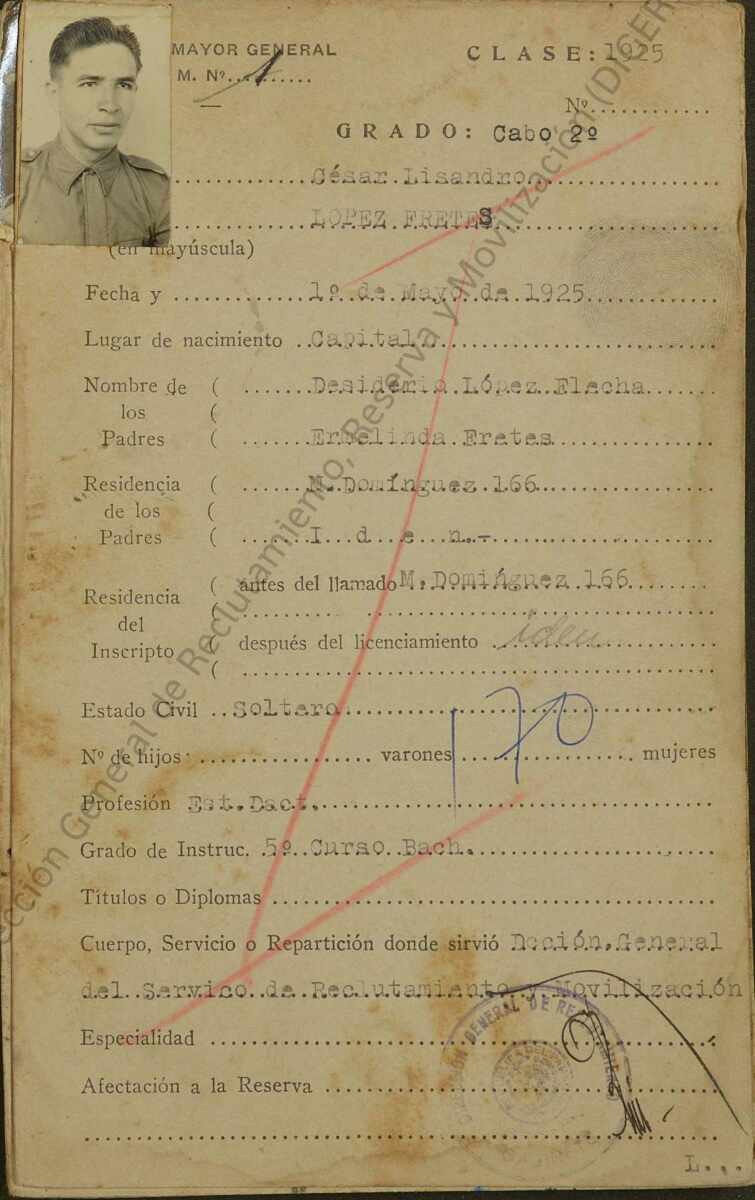 MAYOR GENERAL
M. Nº. 1
CLASE: 1925
Nº
GRADO: Cabo 2º
César Lisandro
LOPEZ FRETES
(en mayúscula)
Fecha y 1º de Mayo de 1925
Lugar de nacimiento Capital
Nombre de ( Desiderio López Flecha
los (
Padres ( Ermelinda Fretes
Residencia ( M. Domínguez 166
de los (
Padres ( I d e n.-
Residencia ( antes del llamado M. Domínguez 166
del (
Inscripto ( después del licenciamiento iden
(
Estado Civil Soltero
170
Nº de hijos varones mujeres
Profesión Est. Dact.
Grado de Instruc. 5º Curso Bach.
Títulos o Diplomas
Cuerpo, Servicio o Repartición donde sirvió Dcción. General
del Servico de Reclutamiento y Movilización
Especialidad
Afectación a la Reserva
L...
GENERAL DE
cción General de Reclutamiento, Reserva y Movilización (DIGER